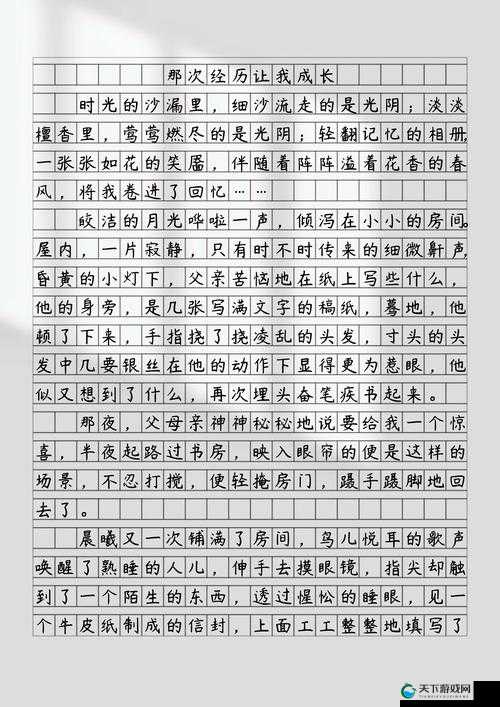 那次经历让我成长
时光的沙漏里，细沙流走的是光阴；淡淡
檀香里，莺莺燃尽的是光阴；轻翻记忆的相册，
一张张如花的笑靥，伴随着阵阵溢着花香的春
风，将我卷进了回忆……
皎洁的月光哗啦一声，倾泻在小小的房间。
屋内，一片寂静，只有时不时传来的细微鼾声，
昏黄的小灯下，父亲苦恼地在纸上写些什么，
他的身旁，是几张写满文字的稿纸，蓦地，他
顿了下来，手指挠了挠凌乱的头发，寸头的头
发中几要银丝在他的动作下显得更为惹眼，他
似又想到了什么，再次埋头奋笔疾书起来。
那夜，父母亲神神秘秘地说要给我一个惊
喜，半夜起路过书房，映入眼帘的便是这样的
场景，不忍打搅，便轻掩房门，蹑手蹑脚地回
去了。
晨曦又一次铺满了房间，鸟儿悦耳的歌声
唤醒了熟睡的人儿，伸手去摸眼镜，指尖却触
到了一个陌生的东西，透过惺忪的睡眼，见一
个牛皮纸制成的信封，上面工工整整地填写了
天下游戏网